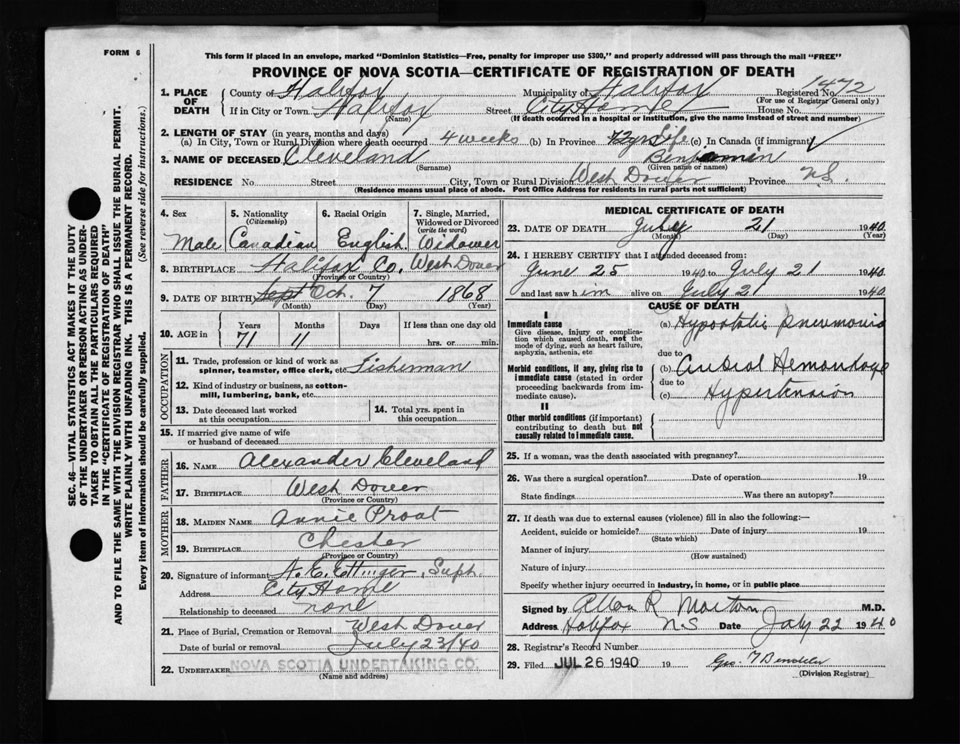 FORM 6
This form if placed in an envelope, marked "Dominion Statistics—Free, penalty for improper use $300," and properly addressed will pass through the mail "FREE"
PROVINCE OF NOVA SCOTIA—CERTIFICATE OF REGISTRATION OF DEATH
SEC. 46—VITAL STATISTICS ACT MAKES IT THE DUTY
OF THE UNDERTAKER OR PERSON ACTING AS UNDER-
TAKER TO OBTAIN ALL THE PARTICULARS REQUIRED
IN THE "CERTIFICATE OF REGISTRATION OF DEATH"
AND TO FILE THE SAME WITH THE DIVISION REGISTRAR WHO SHALL ISSUE THE BURIAL PERMIT.
WRITE PLAINLY WITH UNFADING INK. THIS IS A PERMANENT RECORD.
Every item of information should be carefully supplied. (See reverse side for instructions.)
1. PLACE OF DEATH County of Halifax Municipality of Halifax Registered No. 1472
(For use of Registrar General only)
If in City or Town Halifax Street City Home House No.
(Name) (If death occurred in a hospital or institution, give the name instead of street and number)
2. LENGTH OF STAY (in years, months and days)
(a) In City, Town or Rural Division where death occurred 4 weeks (b) In Province Life (c) In Canada (if immigrant)
3. NAME OF DECEASED Cleveland Benjamin
(Surname) (Given name or names)
RESIDENCE No. Street City, Town or Rural Division West Dover Province N.S.
(Residence means usual place of abode. Post Office Address for residents in rural parts not sufficient)
4. Sex 5. Nationality (Citizenship) 6. Racial Origin 7. Single, Married, Widowed or Divorced (write the word)
Male Canadian English Widower
8. BIRTHPLACE Halifax Co. West Dover
(Province or Country)
9. DATE OF BIRTH Sept Oct. 7 1868
(Month) (Day) (Year)
10. AGE in Years Months Days If less than one day old
71 11 hrs. or min.
OCCUPATION
11. Trade, profession or kind of work as
spinner, teamster, office clerk, etc. Fisherman
12. Kind of industry or business, as cotton-
mill, lumbering, bank, etc.
13. Date deceased last worked at this occupation
14. Total yrs. spent in this occupation
15. If married give name of wife
or husband of deceased
FATHER
16. NAME Alexander Cleveland
17. BIRTHPLACE West Dover
(Province or Country)
MOTHER
18. MAIDEN NAME Annie Proat
19. BIRTHPLACE Chester
(Province or Country)
20. Signature of informant A. E. Ettinger, Supt.
Address City Home
Relationship to deceased none
21. Place of Burial, Cremation or Removal West Dover
Date of burial or removal July 23/40
22. UNDERTAKER NOVA SCOTIA UNDERTAKING CO.
(Name and address)
MEDICAL CERTIFICATE OF DEATH
23. DATE OF DEATH July 21 1940
(Month) (Day) (Year)
24. I HEREBY CERTIFY that I attended deceased from:
June 25 1940 to July 21 1940
and last saw him alive on July 21 1940
CAUSE OF DEATH
I
Immediate cause (a) Hypostatic pneumonia
Give disease, injury or complica-
tion which caused death, not the
mode of dying, such as heart failure,
asphyxia, asthenia, etc due to
Morbid conditions, if any, giving rise to (b) Hemorrhage
immediate cause (stated in order due to
proceeding backwards from im- (c) Hypertension
mediate cause).
II
Other morbid conditions (if important)
contributing to death but not
causally related to immediate cause.
25. If a woman, was the death associated with pregnancy?
26. Was there a surgical operation? Date of operation 19
State findings Was there an autopsy?
27. If death was due to external causes (violence) fill in also the following:—
Accident, suicide or homicide? Date of injury 19
(State which)
Manner of injury
(How sustained)
Nature of injury
Specify whether injury occurred in industry, in home, or in public place
Signed by Allan R Morton M.D.
Address Halifax N S Date July 22 1940
28. Registrar's Record Number
29. Filed JUL 26 1940 19 Geo.
(Division Registrar)